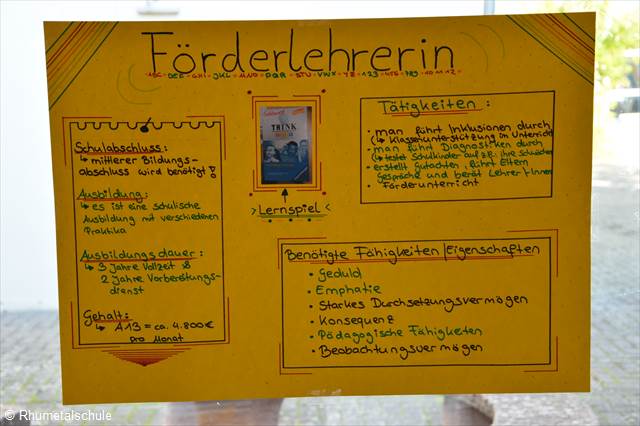 Förderlehrerin
ABC • DEF • GHI • JKL • MNO • PQR • STU • VWX • YZ • 123 • 456 • 789 • 10 11 12 •
Schulabschluss:
↳ mittlerer Bildungs-
abschluss wird benötigt!
Ausbildung:
↳ es ist eine schulische
Ausbildung mit verschiedenen
Praktika
Ausbildungsdauer:
↳ 3 Jahre Vollzeit &
2 Jahre Vorbereitungs-
dienst
Gehalt:
↳ A13 = ca. 4.800€
pro Monat
THINK
> Lernspiel <
Tätigkeiten:
• man führt Inklusionen durch
(↳ Klassenunterstützung im Unterricht
• man führt Diagnostiken durch
(↳ testet Schulkinder auf z.B.: ihre Schwächen
• erstellt Gutachten, führt Eltern
Gespräche und berät Lehrer/-innen
• Förderunterricht
Benötigte Fähigkeiten/Eigenschaften
• Geduld
• Emphatie
• Starkes Durchsetzungsvermögen
• Konsequenz
• Pädagogische Fähigkeiten
• Beobachtungsvermögen
© Rhumetalschule